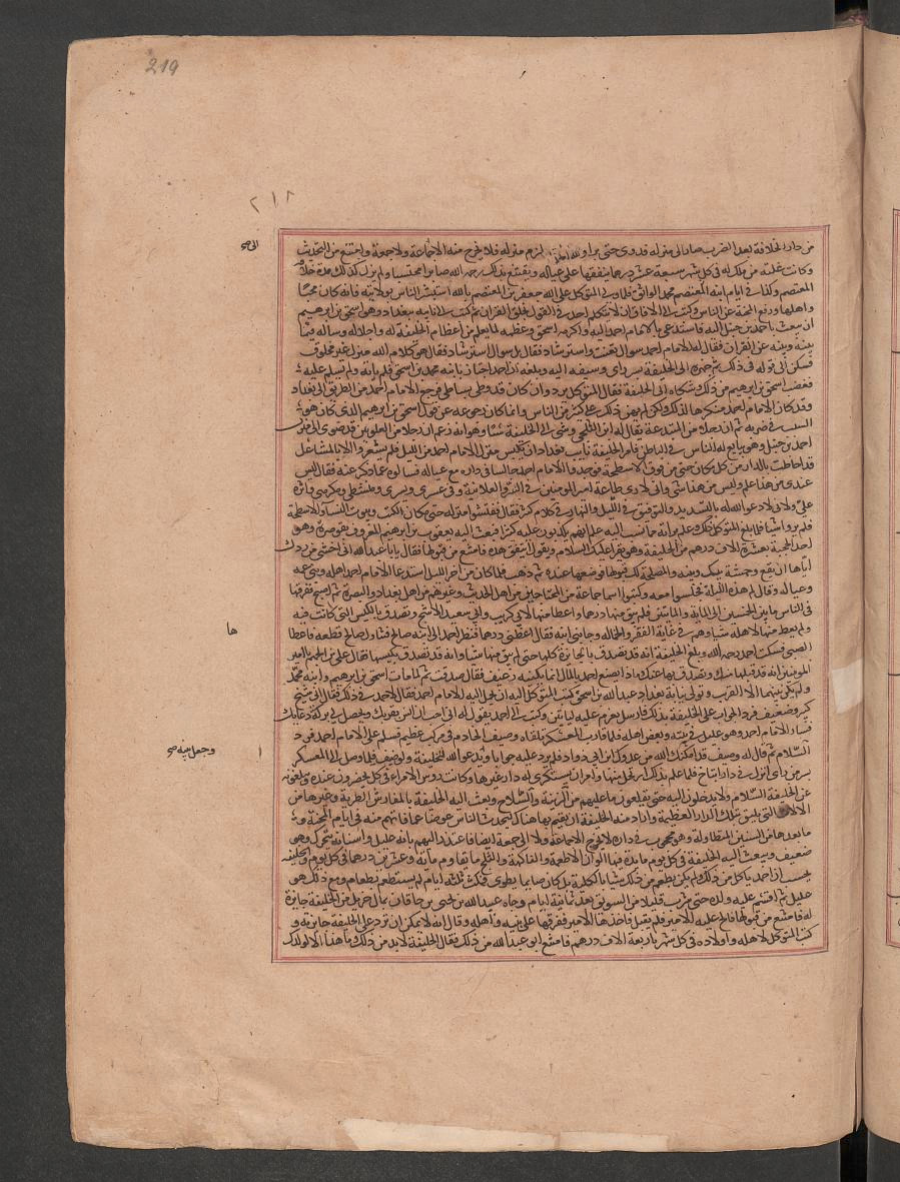 219
٢١٨
من دار الخلافة بعد الضرب صار الى منزله فدووى حتى برا ولله الحمد لزم منزله فلا يخرج منه الا لجماعة ولا جمعة وامتنع من التحديث
وكانت غلته من ملك له في كل شهر سبعة عشر درهما ينفقها على عياله ويقنع بذلك رحمه الله صابرا محتسبا ولم يزل كذلك مدة خلافة
المعتصم وكذا في ايام ابنه محمد الواثق فلما ولي المتوكل على الله جعفر بن المعتصم بالله استبشر الناس بولايته فانه كان محبا
واهلها ورفع المحنة عن الناس وكتب الى الافاق ان لا يتكلم احد في القول بخلق القران ثم كتب الى نايبه ببغداد وهو اسحق بن ابرهيم
ان يبعث باحمد بن حنبل اليه فاستدعى بالامام احمد اليه واكرمه اسحق وعظمه لما يعلم من اعظام الخليفة له واجلاله وساله فيما
بينه وبينه عن القران فقال له الامام احمد سوال تعنت او استرشاد فقال بل سوال استرشاد فقال هو كلام الله منزل غير مخلوق
فسكن الى قوله في ذلك ثم جهزه الى الخليفة بسر من راى وسبقه اليه وبلغه ان احمد اجتاز بابنه محمد بن اسحق فلم ياته ولم يسلم عليه
فغضب اسحق بن ابرهيم من ذلك وشكاه الى الخليفة فقال المتوكل يرد وان كان قد وطى بساطي فرجع الامام احمد من الطريق الى بغداد
وقد كان الامام احمد متكرها لذلك ولكن لم يهن ذلك على كثير من الناس وانما كان رجوعه عن قول اسحق بن ابرهيم الذي كان هو
السبب في ضربه ثم ان رجلا من المبتدعة يقال له ابن الثلجي وشى الى الخليفة شيئا وهو انه زعم ان رجلا من العلويين قد ضوى الى منزل
احمد بن حنبل وهو يبايع له الناس في الباطن فامر الخليفة نايب بغداد ان يكبس منزل الامام احمد من الليل فلم يشعروا الا بالمشاعل
قد احاطت بالدار من كل مكان حتى من فوق الاسطحة فوجدوا الامام احمد جالسا في داره مع عياله فسالوه عما ذكر عنه فقال ليس
عندي من هذا علم وليس من هذا شي واني لارى طاعة امير المومنين في السر والعلانية وفي عسري ويسري ومنشطي ومكرهي واثرة
علي واني لادعو الله له بالتسديد والتوفيق في الليل والنهار في كلام كثير فقال ففتشوا منزله حتى مكان الكتب وبيوت النساء والاسطحة
فلم يروا شيا فلما بلغ المتوكل ذلك وعلم براته مما نسب اليه علم انهم يكذبون عليه كثيرا فبعث اليه يعقوب بن ابرهيم المعروف بقوصرة وهو
احد الحجبة بعشرة الاف درهم من الخليفة وهو يقرا عليك السلام ويقول استنفق هذه فامتنع من قبولها فقال يا ابا عبد الله اني اخشى من ردك
اياها ان يقع وحشة بينك وبينه والمصلحة لك قبولها فوضعها عنده ثم ذهب فلما كان من اخر الليل استدعا الامام احمد اهله وبني عمه
وعياله وقال لم هذه الليلة فجلسوا معه وكتبوا اسما جماعة من المحتاجين من اهل الحديث وغيرهم من اهل بغداد والبصرة ثم اصبح ففرقها
في الناس ما بين الخمسين الى الماية والمائتين فلم يبق منها درهما واعطا منها لابي كريب وابي سعيد الاشج وتصدق بالكيس التي كانت فيه
ولم يعط منها لاهله شيا وهم في غاية الفقر والحاجة وجا بني ابنه فقال اعطني درهما فنظر احمد الى ابنه صالح فتناول صالح قطعة فاعطا
الصبي فسكت احمد رحمه الله وبلغ الخليفة انه قد تصدق بالجايزة كلها حتى لم يبق منها شيا وانه قد تصدق بكيسها فقال علي بن الجهم يا امير
المومنين انه قد قبلها منك وتصدق بها عنك ماذا يصنع احمد بالمال انما يكفيه رغيف فقال صدقت ثم لما مات اسحق بن ابرهيم وابنه محمد
ولم يكن بينهما الا القريب وتولى نيابة بغداد عبد الله بن اسحق كتب المتوكل اليه ان يحمل اليه الامام احمد فقال لاحمد في ذلك فقال اني شيخ
كبير وضعيف فرد الجواب على الخليفة بذلك فارسل يعزم عليه لياتين وكتب الى احمد يقول له اني احب ان انس بقربك ويحصل لي بركة دعايك
فسار الامام احمد وهو عليل في بنيه وبعض اهله فلما قارب العسكر تلقاه وصيف الخادم في موكب عظيم فسلم على الامام احمد فرد
السلام ثم قال له وصيف قد امكنك الله من عدوك ابن ابي دواد فلم يرد عليه جوابا وابنه يدعو الله للخليفة ولوصيف فلما وصل الى المعسكر
بسر من راى انزل في دار ايتاخ فلما علم بذلك ارتحل منها وامر ان يستكرى له دار غيرها وكانت روس الامراء في كل يحضرون عنده ويبلغونه
عن الخليفة السلام ولا يدخلون اليه حتى يقلعون ما عليهم من الزينة والسلاح وبعث اليه الخليفة بالمفارش الطرية وغيرها من
الالات التي تليق بتلك الدار العظيمة واراد منه الخليفة ان يقيم بها هناك ليحدث الناس عوضا عما فاتهم منه في ايام المحنة و
ما بعدها من السنين المتطاولة وهو محجوب في داره لا يخرج الا لجماعة ولا الى جمعة ايضا فاعتذر اليهم بانه عليل واسنانه تتحرك وهو
ضعيف ويبعث اليه الخليفة في كل يوم مايدة فيها الوان الاطعمة والفاكهة والثلج ما يقاوم ماية وعشرين درهما في كل يوم والخليفة
يحسب ان احمد ياكل من ذلك ولم يكن يطعم من ذلك شيا بالكلية بل كان صايما يطوى فمكث ثلثة ايام لم يستطعم بطعام ومع ذلك هو
عليل ثم اقسم عليه ولده حتى شرب قليلا من السويق بعد ثمانية ايام وجاه عبيد الله بن يحيى بن خاقان بمال جزيل من الخليفة جايزة
له فامتنع من قبولها فالح عليه الامير فلم يقبل فاخذها الامير ففرقها على بنيه واهله وقال انه لا يمكن ان ترد على الخليفة جايزته و
كتب المتوكل لاهله واولاده في كل شهر باربعة الاف درهم فامتنع ابو عبد الله من ذلك فقال الخليفة لابد من ذلك وما هذا الا لولدك
الى صح
ها
وجعل بنيه صح